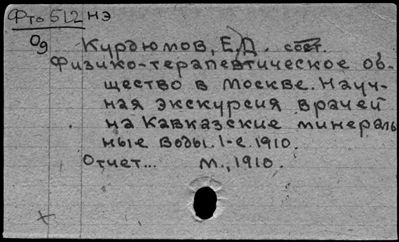 Фто 512 нэ
Од
Курдюмов, Е.Д. сост.
Физико-терапевтическое об-
щество в Москве. Науч-
ная экскурсия врачей
на Кавказские минераль
ные воды. 1-е. 1910.
Отчет... М., 1910.